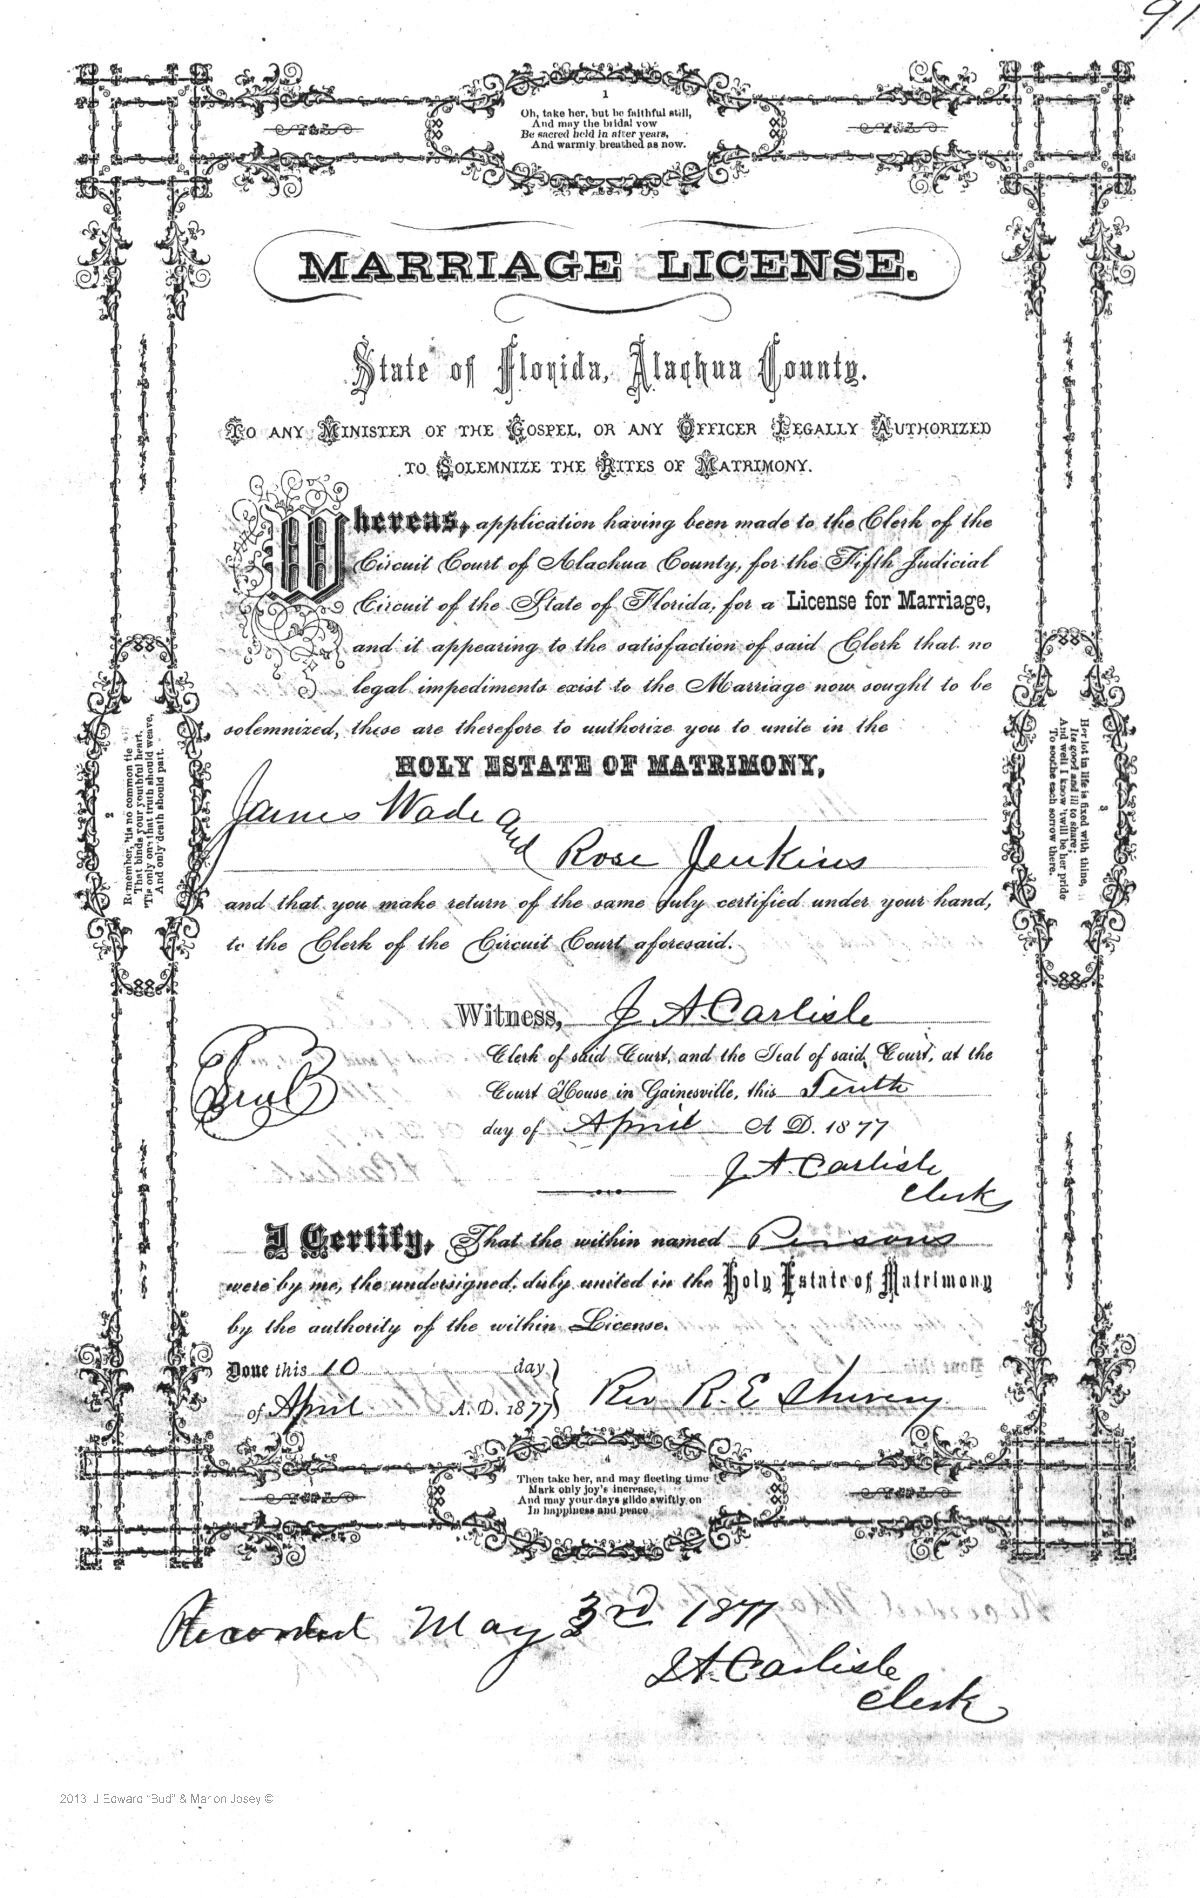 91
1
Oh, take her, but be faithful still,
And may the bridal vow
Be sacred held in after years,
And warmly breathed as now.
MARRIAGE LICENSE.
State of Florida, Alachua County.
TO ANY MINISTER OF THE GOSPEL, OR ANY OFFICER LEGALLY AUTHORIZED
TO SOLEMNIZE THE RITES OF MATRIMONY.
Whereas, application having been made to the Clerk of the
Circuit Court of Alachua County, for the Fifth Judicial
Circuit of the State of Florida, for a License for Marriage,
and it appearing to the satisfaction of said Clerk that no
legal impediments exist to the Marriage now sought to be
solemnized, these are therefore to authorize you to unite in the
HOLY ESTATE OF MATRIMONY,
James Wade and
Rose Jenkins
and that you make return of the same duly certified under your hand,
to the Clerk of the Circuit Court aforesaid.
2
Remember, 'tis no common tie
That binds your youthful heart,
'Tis only one that truth should weave,
And only death should part.
3
Her lot in life is fixed with thine,
Its good and ill to share;
And well I know 'twill be her pride
To soothe each sorrow there.
Witness, J A Carlisle
Clerk of said Court, and the Seal of said Court, at the
Court House in Gainesville, this Tenth
day of April A D. 1877
J A Carlisle
Clerk
I Certify, That the within named Persons
were by me, the undersigned, duly united in the Holy Estate of Matrimony
by the authority of the within License.
Done this 10 day
of April A. D. 1877
Rev R. E.
4
Then take her, and may fleeting time
Mark only joy's increase,
And may your days glide swiftly on
In happiness and peace
Recorded May 3rd 1877
J A Carlisle
Clerk
2013 J Edward "Bud" & Marion Josey ©